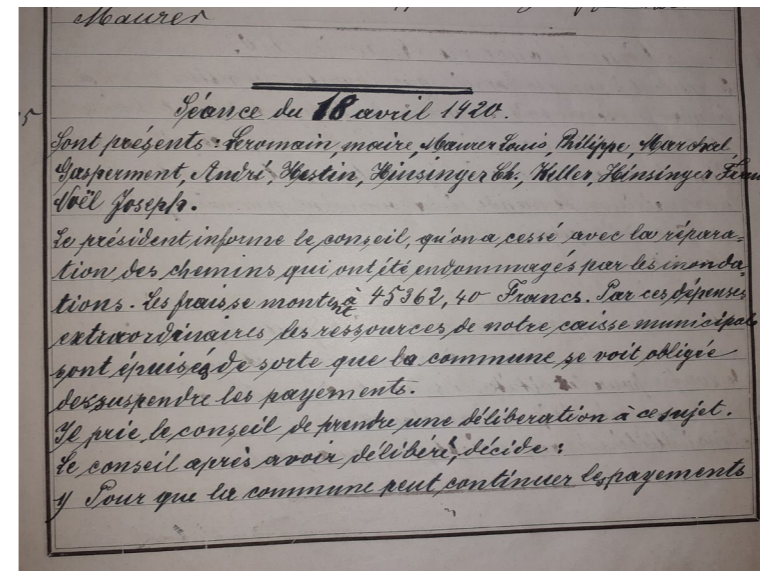 Maurer
Séance du 18 avril 1920.
Sont présents : Leromain, maire, Maurer Louis, Philippe, Marchal
Gasperment, André, Hestin, Hinsinger Ch., Keller, Hinsinger
Noël Joseph.
Le président informe le conseil, qu'on a cessé avec la répara=
tion des chemins qui ont été endommagés par les inonda=
tions. Les frais se montent à 45362,40 Francs. Par ces dépenses
extraordinaires les ressources de notre caisse municipale
sont épuisées de sorte que la commune se voit obligée
de suspendre les payements.
Il prie le conseil de prendre une déliberation à ce sujet.
Le conseil après avoir délibéré, décide :
1) Pour que la commune peut continuer les payements